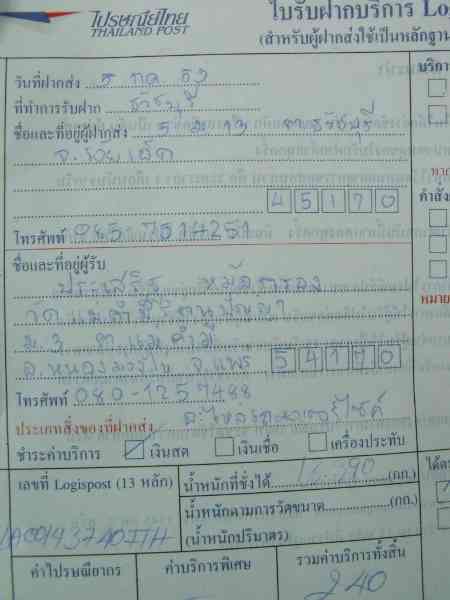 ไปรษณีย์ไทย
THAILAND POST
ใบรับฝากบริการ Log
(สำหรับผู้ฝากส่งใช้เป็นหลักฐาน
วันที่ฝากส่ง 5 กค 59
ที่ทำการรับฝาก ธวัชบุรี
ชื่อและที่อยู่ผู้ฝากส่ง 5 ม 13 ธวัชบุรี
จ.ร้อยเอ็ด
45170
โทรศัพท์
ชื่อและที่อยู่ผู้รับ
ประเสริฐ
ม.3 ต แม่คำมี
อ.หนองม่วงไข่ จ.แพร่ 54170
โทรศัพท์ 080-1257488
ประเภทสิ่งของที่ฝากส่ง อะไหล่รถมอเตอร์ไซค์
ชำระค่าบริการ เงินสด เงินเชื่อ เครื่องประทับ
บริกา
คำสั่ง
หมายเ
เลขที่ Logispost (13 หลัก)
น้ำหนักที่ชั่งได้ (กก.)
น้ำหนักตามการวัดขนาด (กก.)
(น้ำหนักปริมาตร)
ได้ตร
ค่าไปรษณียากร ค่าบริการพิเศษ รวมค่าบริการทั้งสิ้น
240